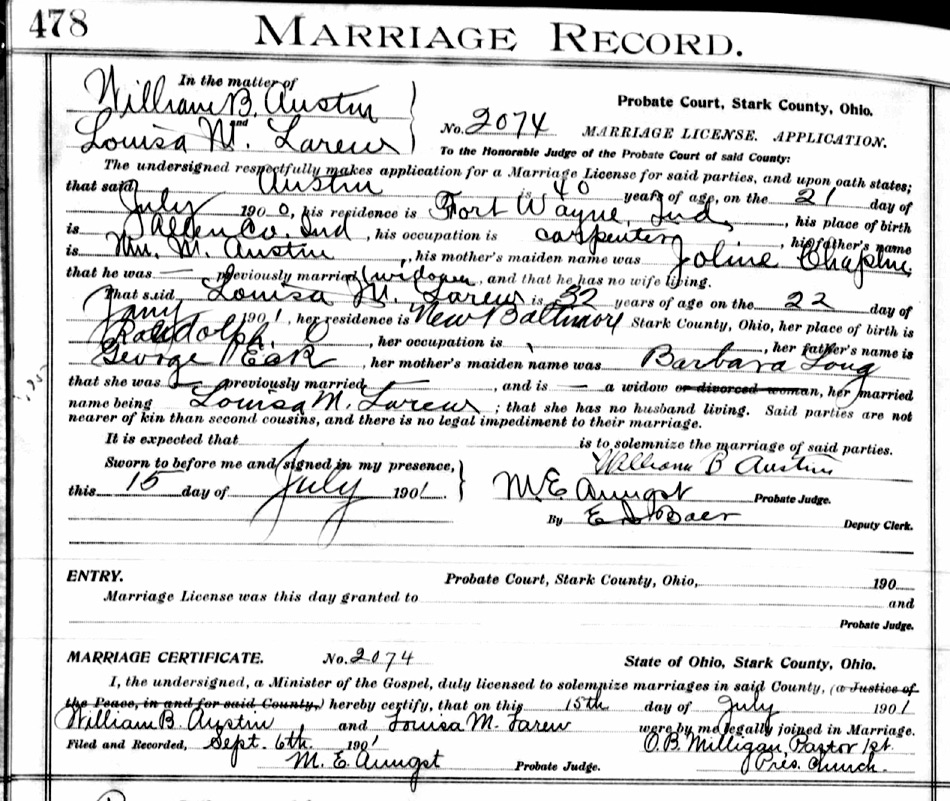 478 MARRIAGE RECORD.
In the matter of
William B. Austin
and
Louisa M. Larew
Probate Court, Stark County, Ohio.
No. 2074 MARRIAGE LICENSE. APPLICATION.
To the Honorable Judge of the Probate Court of said County:
The undersigned respectfully makes application for a Marriage License for said parties, and upon oath states;
that said Austin is 40 years of age, on the 21 day of
July 1900, his residence is Fort Wayne, Ind, his place of birth
is Allen Co. Ind, his occupation is carpenter, his father's name
is Wm. M. Austin, his mother's maiden name was Joline Chapline,
that he was — previously married (widower, and that he has no wife living.
That said Louisa M. Larew is 32 years of age on the 22 day of
Jany 1901, her residence is New Baltimore Stark County, Ohio, her place of birth is
Randolph, O, her occupation is , her father's name is
George Peck, her mother's maiden name was Barbara Long
that she was — previously married, and is — a widow or divorced woman, her married
name being Louisa M. Larew; that she has no husband living. Said parties are not
nearer of kin than second cousins, and there is no legal impediment to their marriage.
It is expected that is to solemnize the marriage of said parties.
William B Austin
Sworn to before me and signed in my presence,
this 15 day of July 1901
M. E Aungst Probate Judge.
By E S Baer Deputy Clerk.
ENTRY. Probate Court, Stark County, Ohio, 190
Marriage License was this day granted to and
Probate Judge.
MARRIAGE CERTIFICATE. No. 2074 State of Ohio, Stark County, Ohio.
I, the undersigned, a Minister of the Gospel, duly licensed to solemnize marriages in said County, (a Justice of
the Peace, in and for said County,) hereby certify, that on this 15th day of July 1901
William B. Austin and Louisa M. Larew were by me legally joined in Marriage.
Filed and Recorded, Sept. 6th. 1901 O. B. Milligan Pastor 1st.
M. E. Aungst Probate Judge. Pres. Church.